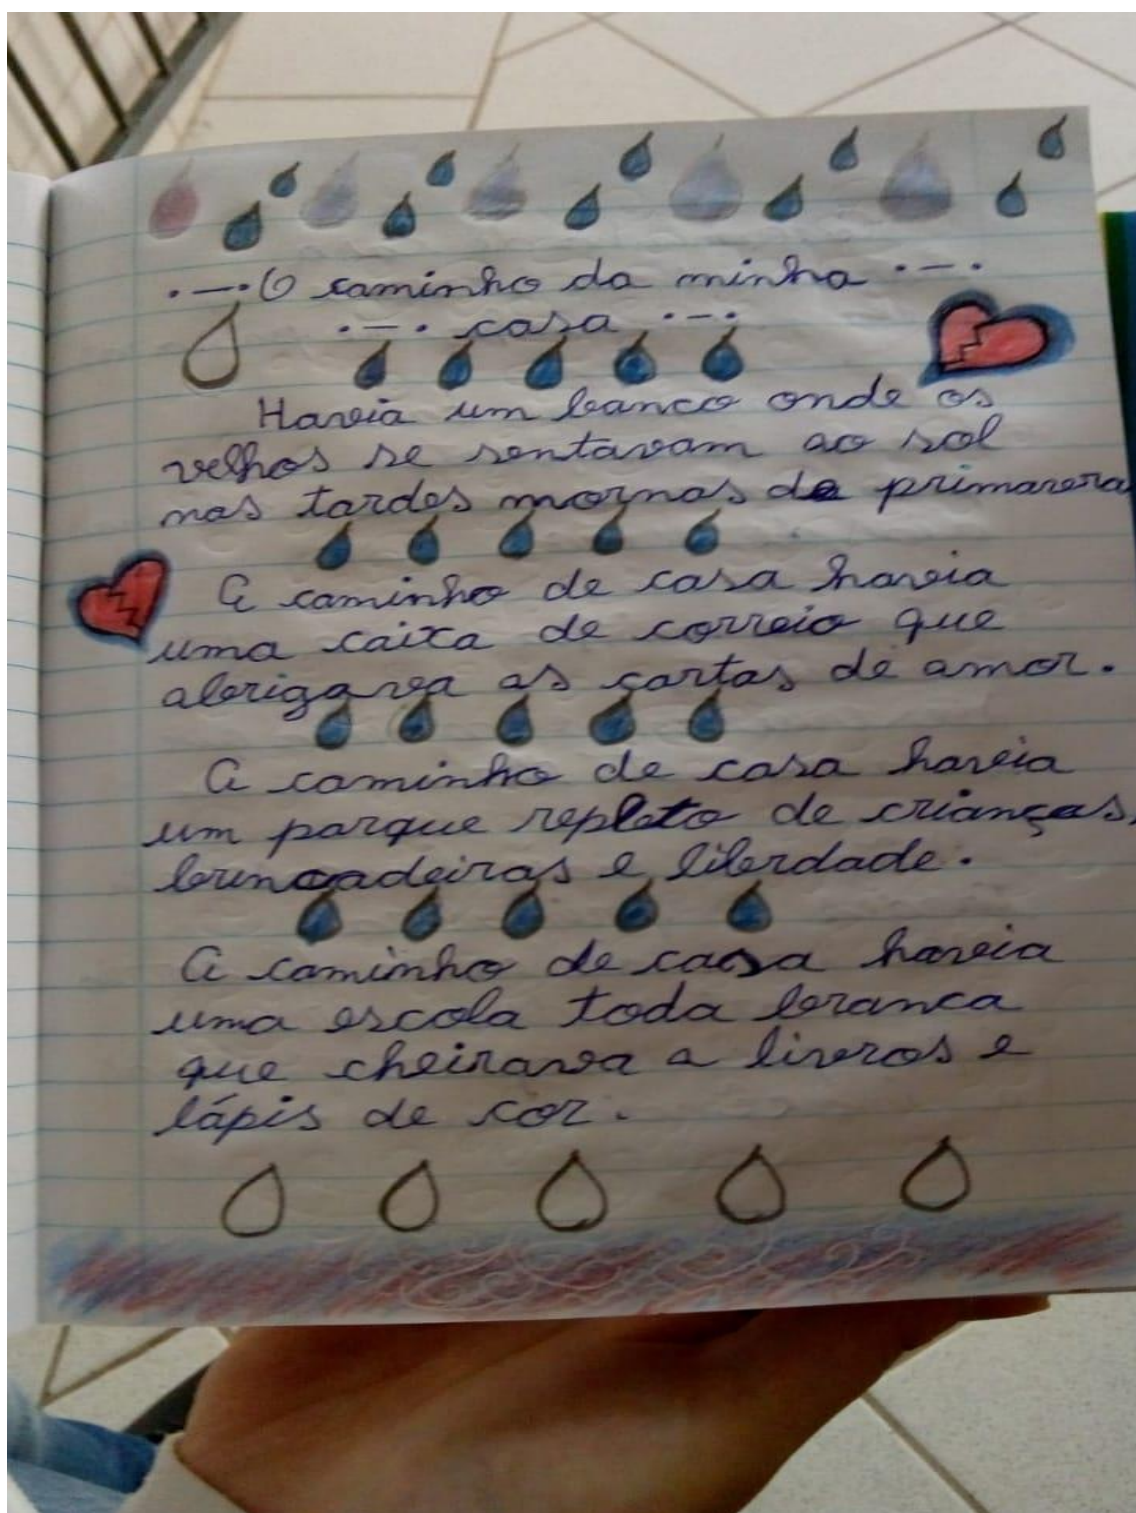 .-.O caminho da minha .-.
.-. casa .-.
Havia um banco onde os
velhos se sentavam ao sol
nas tardes mornas de primavera
A caminho de casa havia
uma caixa de correio que
abrigava as cartas de amor.
A caminho de casa havia
um parque repleto de crianças,
brincadeiras e liberdade.
A caminho de casa havia
uma escola toda branca
que cheirava a livros e
lápis de cor.